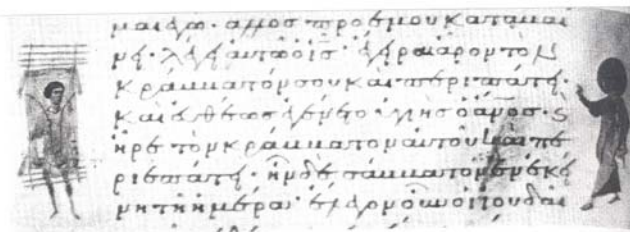 μαι ἐγω· ἀλλος προ ἐμου καταβαι
νει· λέγει αὐτῶ ὁ ις· ἔγειραι ἆρον τὸν
κράββατόν σου καὶ περιπάτει·
καὶ εὐθέως ἐγένετο ὑγιὴς ὁ ανος· ϗ
ἦρε τὸν κράββατον αὐτοῦ καὶ πε
ριεπάτει· ἦν δὲ σάββατον ἐν ἐκεί
νη τῆ ἡμέρα· ἔλεγον οὖν οἱ ἰουδαῖ